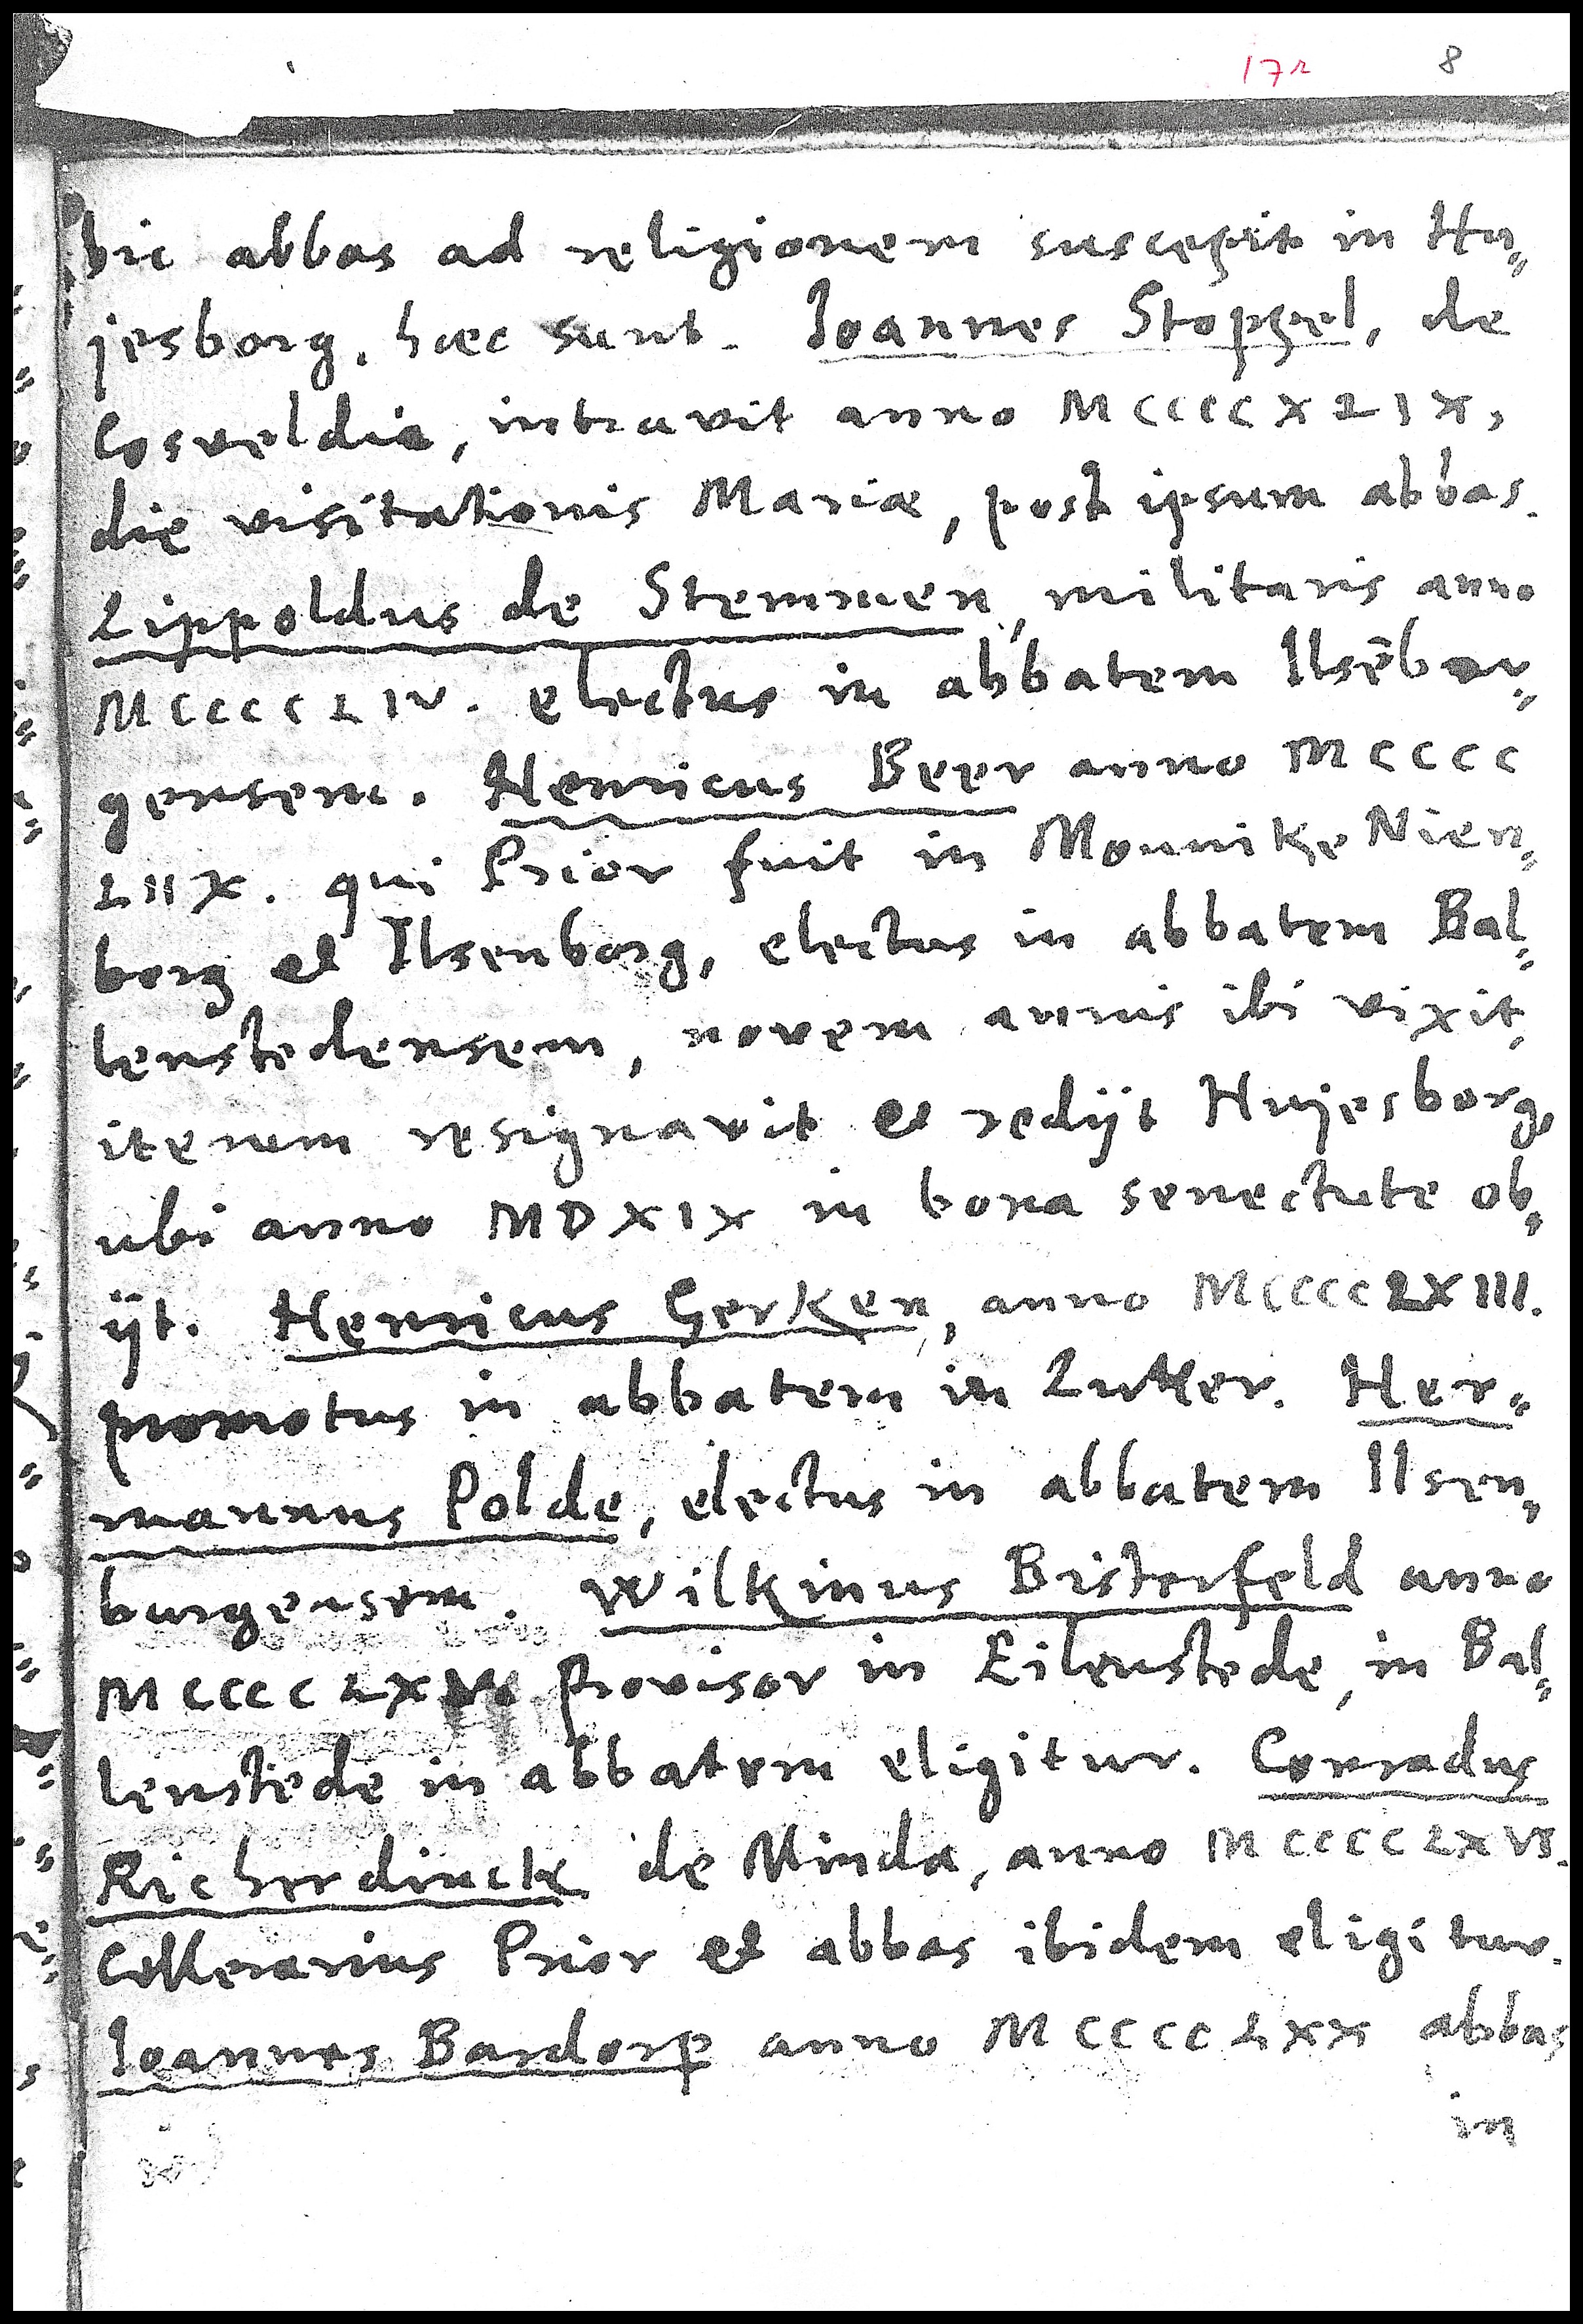 17r 8
hic abbas ad religionem suscepit in Hu=
jesborg, hæc sunt. Ioannes Stoppel, de
Cosveldia, intravit anno MCCCCXLIX,
die visitationis Mariæ, post ipsum abbas.
Lippoldus de Stemmen, militaris anno
MCCCCLIV. electus in abbatem Ilsēbur=
gensem. Henricus Beer anno MCCCC
LIIX. qui Prior fuit in Monnike Nien=
borg et Ilsenborg, electus in abbatem Bal=
lenstedensem, novem annis ibi vixit,
iterum resignavit et redijt Hujesborg,
ubi anno MDXIX in bona senectute ob=
ijt. Henricus Gerken, anno MCCCCLXIII.
promotus in abbatem in Lutter. Her=
mannus Polde, electus in abbatem Ilsen=
burgensem. Wilkinus Bistorfeld anno
MCCCCLX Provisor in Eilenstede, in Bal=
lenstede in abbatem eligitur. Conradus
Richerdinck de Minda, anno MCCCCLXVI.
Cellerarius Prior et abbas ibidem eligitur.
Ioannes Bardorp anno MCCCCLXX abbas
in